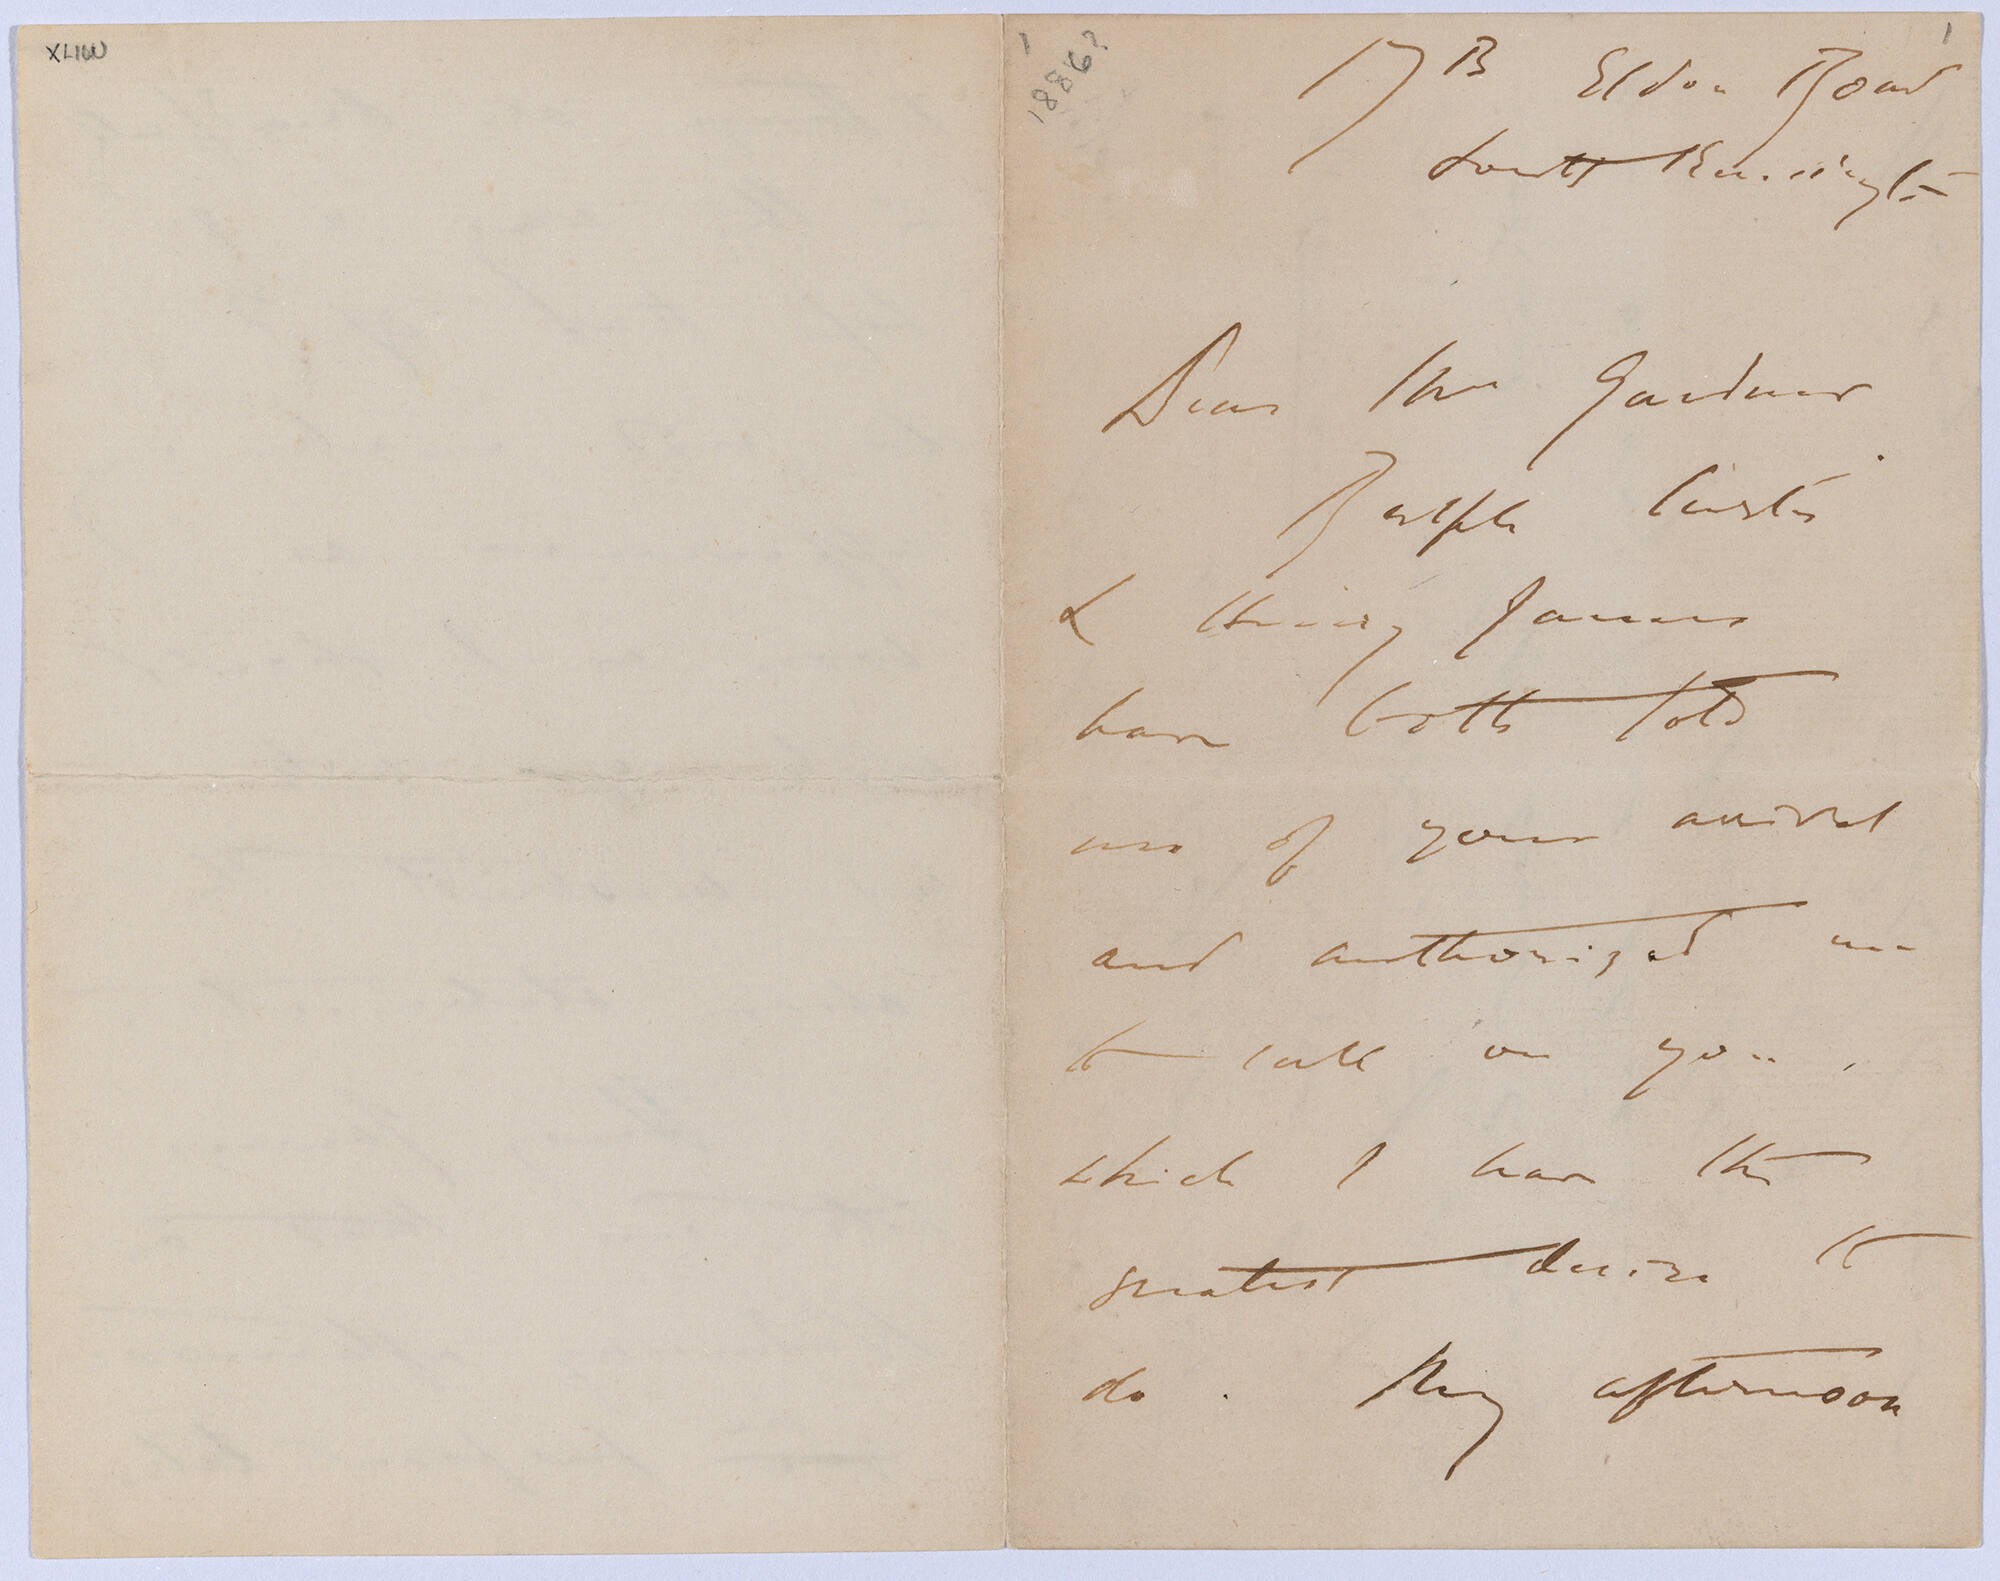 XLIW
1
1886?
1
17 B Eldon Road
South Kensington
Dear Mrs Gardner.
Ralph Curtis
& Henry James
have both told
me of your arrival
and authorized me
to call on you,
which I have the
greatest desire to
do. My afternoon